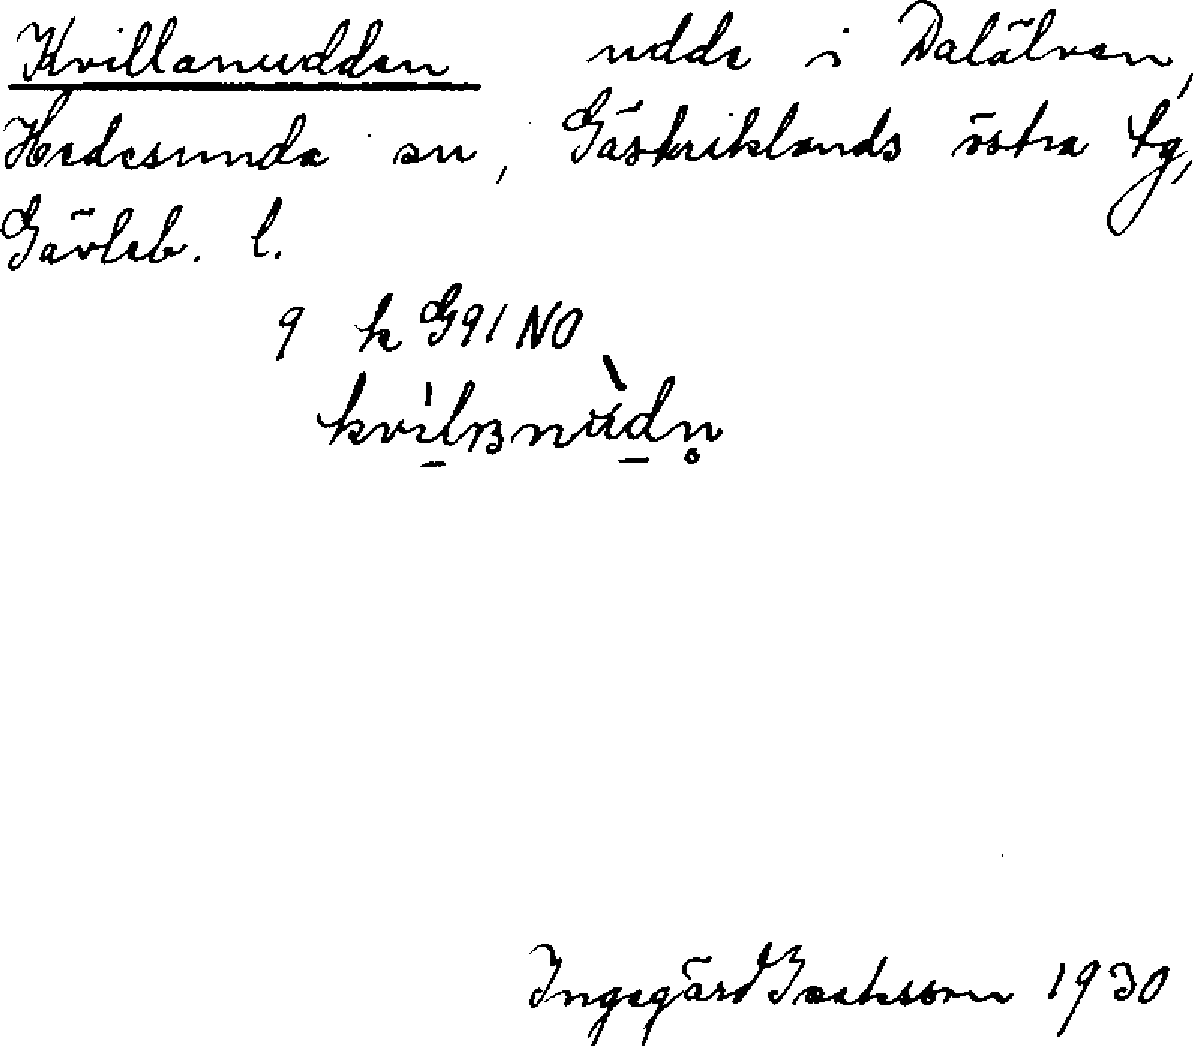 Kvillanudden udde i Dalälven,
Hedesunda sn, Gästriklands östra tg,
Gävleb. l.
9 k G91 NO
Ingegärd Isaksson 1930